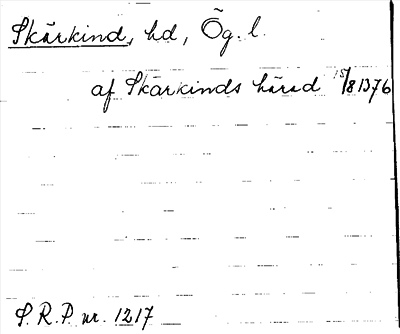 Skärkind, hd, Ög. l.
af Skärkinds härad 15/8 1376
S.R.P. nr. 1217